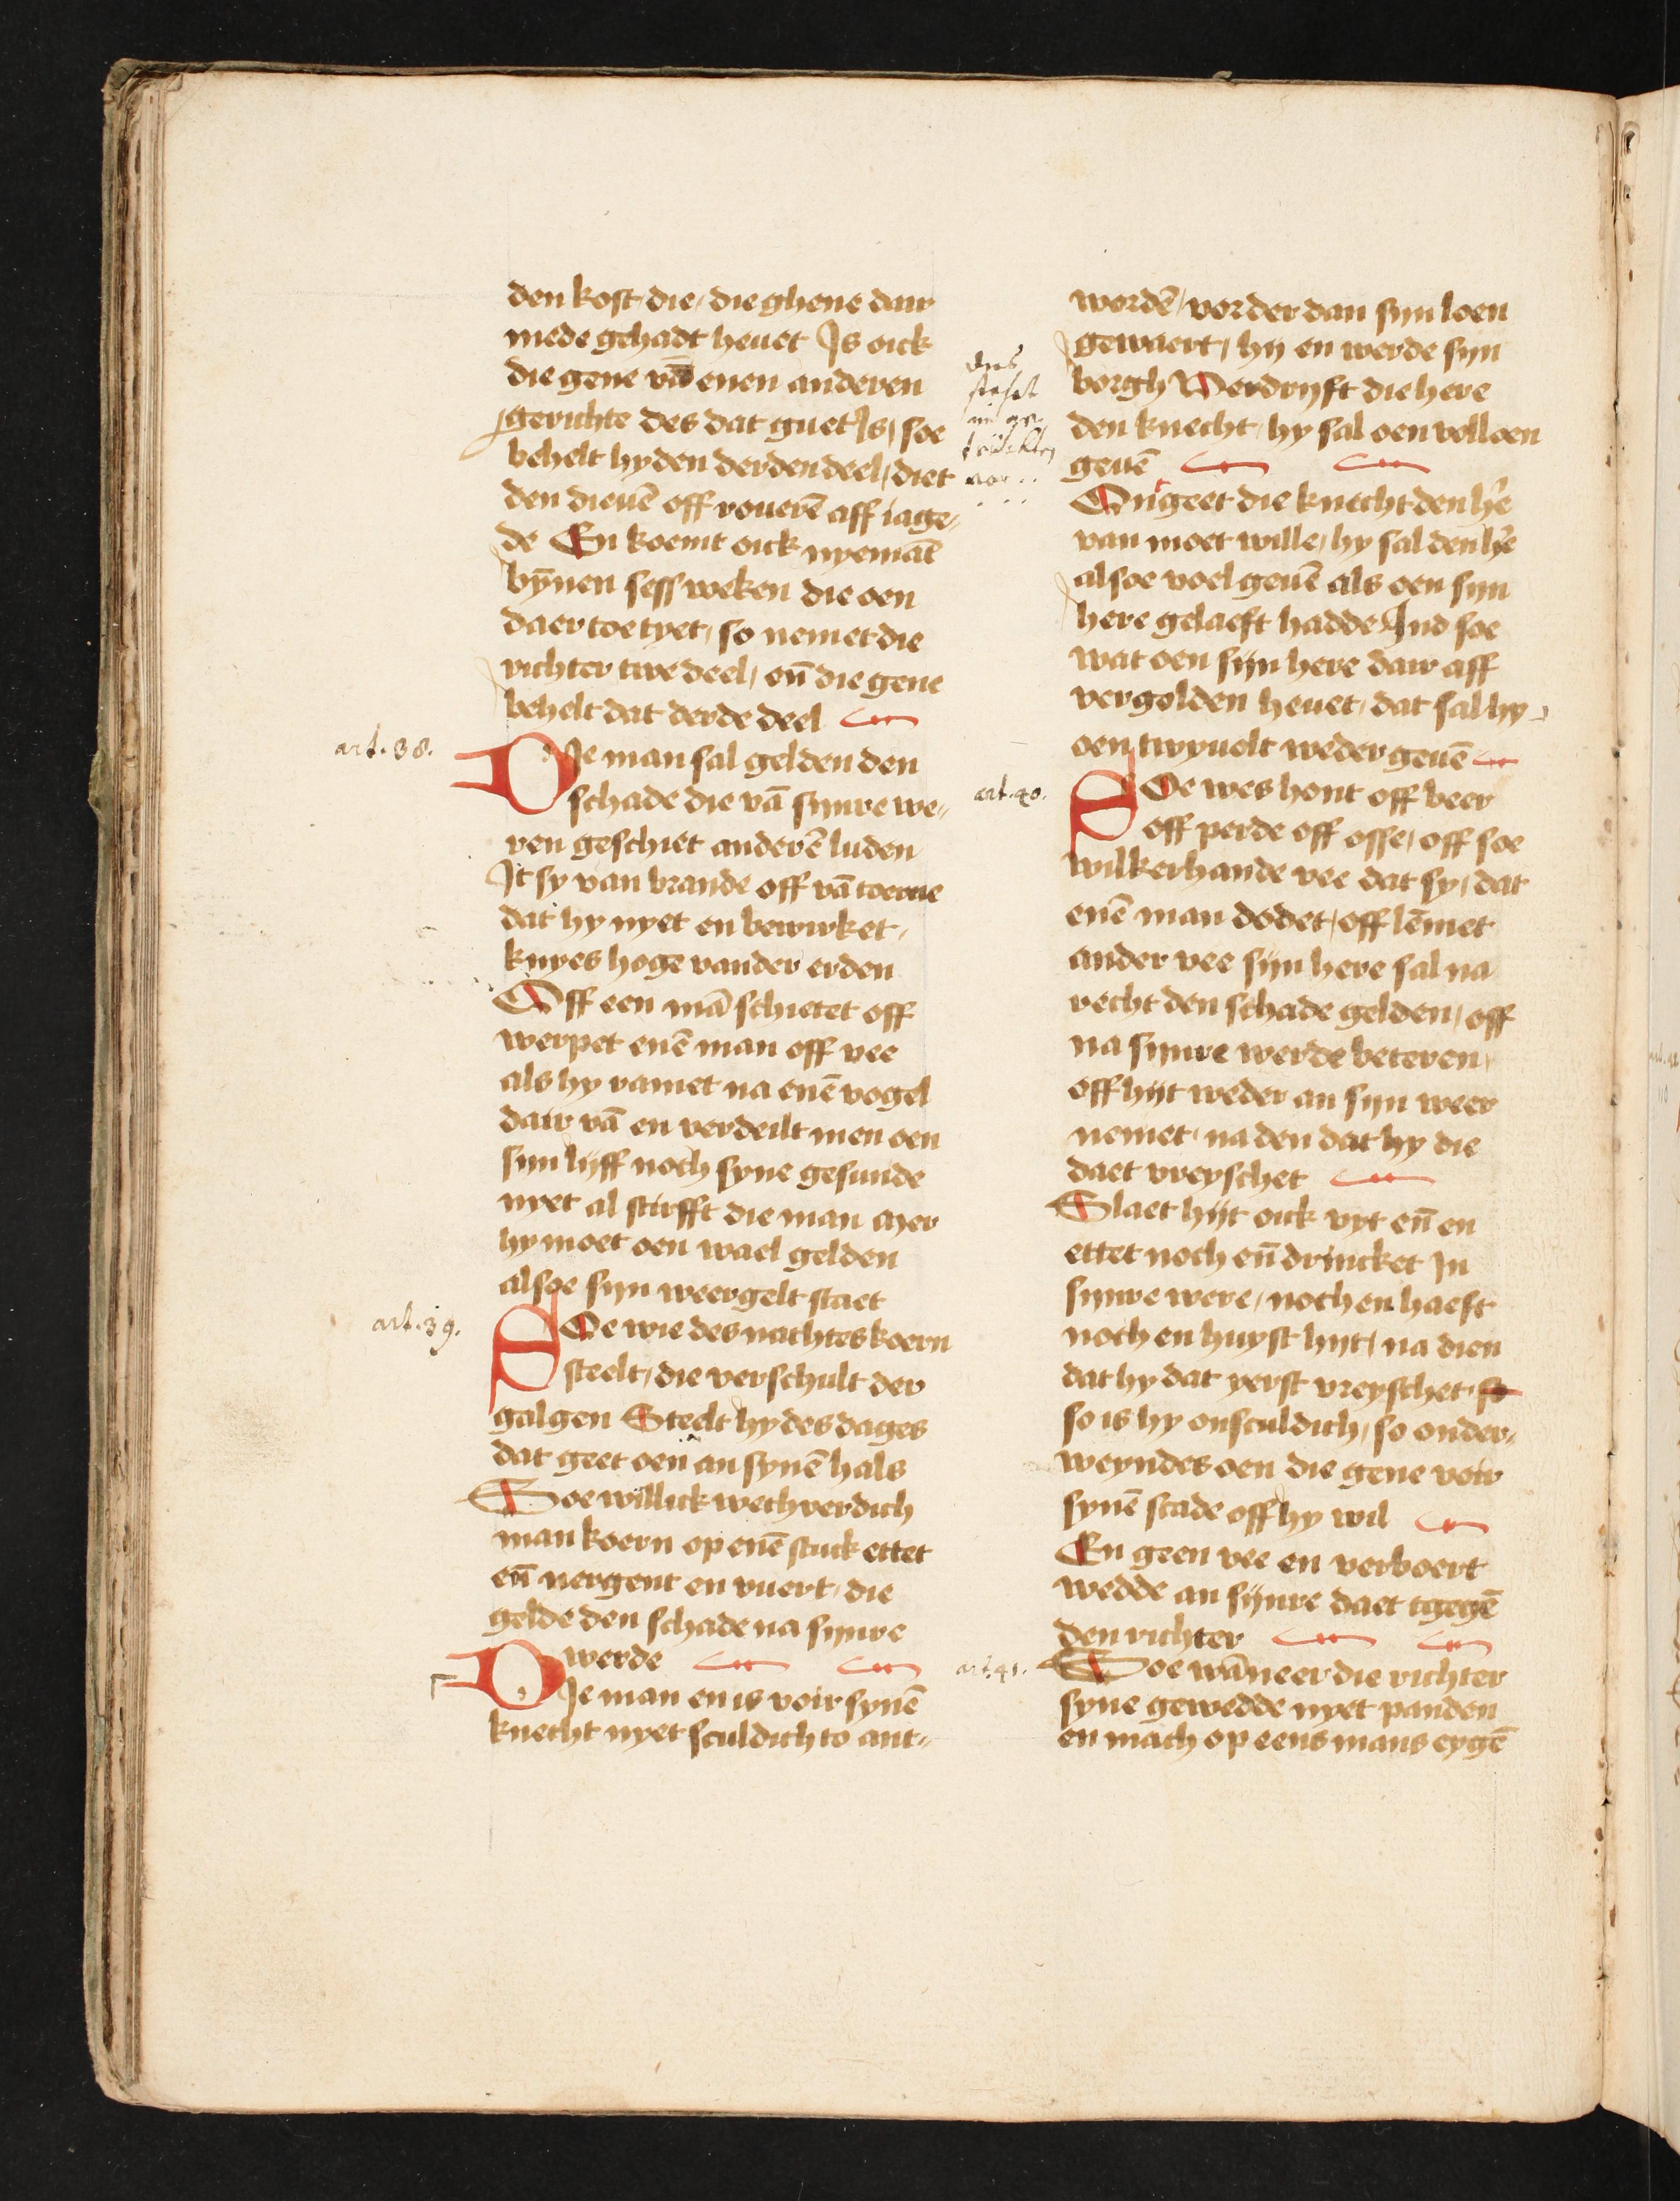 den kost, die, die ghene dair
mede gehadt heuet Js oick
die gene vā enen anderen
gerichte des dat guet Js, soe
behelt hy den derden deel, diet
den dieuē off rouerē aff iage„
de En koemt oick nyemāt
bȳnen sess weken die oen
daer toe tyet, so nemet die
richter twe deel, eñ die gene
behelt dat derde deel
art. 38.
DJe man sal gelden den
schade die vā synre we„
ren geschiet anderē luden
Jt sy van brande off vā toerne
dat hy nyet en bewirket,
knyes hoge vander erden
Off een mā schietet off
werpet enē man off vee
als hy ramet na enē vogel
dair vā en verdeilt men oen
syn lyff noch syne gesunde
nyet al stirfft die man Mer
hy moet oen wael gelden
alsoe syn weergelt staet
art. 39.
SOe wie des nachtes koern
steelt, die verschult der
galgen Steelt hy des dages
dat geet oen an synē hals
Soe willick wechverdich
man koern op enē stuck ettet
eñ nergent en vuert, die
gelde den schade na synre
werde
DJe man en is voir synē
knecht nyet sculdich to ant„
wordē, vorder dan syn loen
gewaert, hy en werde syn
borgh Verdryft die here
den knecht, hy sal oen vol loen
geuē
Ontgeet die knecht den hr̄e
van moet wille, hy sal den hr̄e
alsoe voel geuē als oen syn
here gelaeft hadde Jnd soe
wat oen syn here dair aff
vergolden heuet, dat sal hy
oen twyuolt weder geuē
art. 40.
SOe wes hont off beer
off perde off osse, off soe
wilkerhande vee dat sy, dat
enē man dodet, off lēmet
ander vee syn here sal na
recht den schade gelden, off
na synre werde beteren,
off hijt weder an syn weer
nemet, na den dat hy die
daet vreyschet
Slaet hijt oick vyt eñ en
ettet noch eñ drincket Jn
synre were, noch en haeft
noch en huyst hijt, na dien
dat hy dat yerst vreyschet so
so is hy onsculdich, so onder„
weyndes oen die gene voir
synē scade off hy wil
En geen vee en verboert
wedde an synre daet tgegē
den richter
art. 41.
Soe wāneer die richter
syne gewedde nyet panden
en mach op eens mans eygē